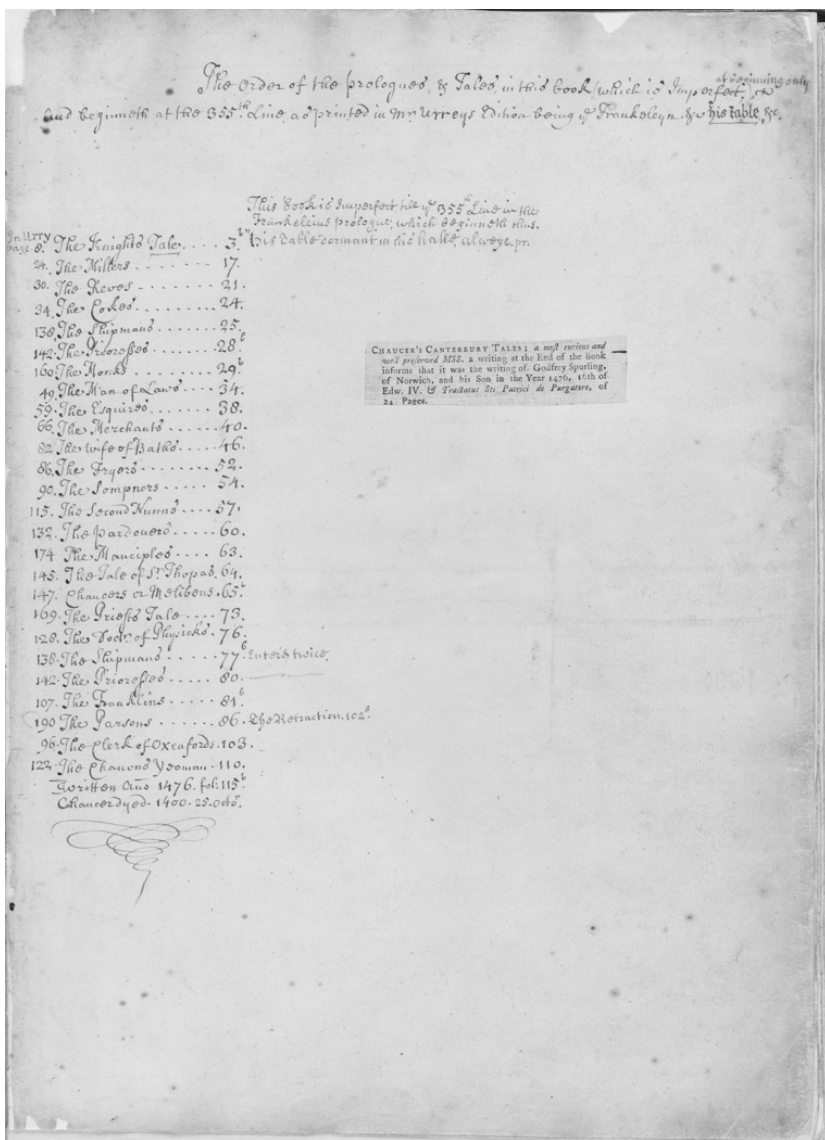 The Order of the prologues, & Tales, in this book (which is Imperfect at beginning only
And beginneth at the 355th Line, as printed in Mr. Urreys Edition being ye Frankeleyn. his table, &c.
This Book is Imperfect till ye 355th Line in the
Frankeleins prologue, which beginneth thus.
his table dormant in his halle, alweye. pr.
In Urry
page 8. The Knights Tale.... 3.b
24. The Millers - - - - - - 17.
30. The Reves - - - - - - - 21.
34. The Cokes - - - - - - - 24.
138. The Shipmans - - - - - 25.
142. The Prioresses - - - - 28b
160. The Monks - - - - - - 29b
49. The Man of Laws - - - - 34.
59. The Esquires - - - - - - 38.
66. The Merchants - - - - 40.
82. The Wife of Baths - - - - 46.
86. The Fryers - - - - - - - 52.
90. The Sompners - - - - - 54.
115. The Second Nunns - - - - 57.
132. The pardoners - - - - - 60.
174. The Manciples - - - - 63.
145. The Tale of Sr. Thopas. 64.
147. Chaucers or Melibeus. 65b
169. The Priests Tale - - - - 73.
128. The Doctr. of Physicks. 76.
138. The Shipmans - - - - - 77b Enter'd twice.
142. The Prioresses - - - - 80.
107. The Franklins - - - - - 81b
190 The Parsons - - - - - 86. The Retraction. 102b
96. The Clerk of Oxenfords. 103.
122. The Chanons Yeoman - 110.
Written Ano 1476. fol: 115b
Chaucer dyed. 1400. 25. Octo.
CHAUCER'S CANTERBURY TALES; a most curious and
well preserved MSS. a writing at the End of the Book
informs that it was the writing of Godfrey Spurling,
of Norwich, and his Son in the Year 1476, 16th of
Edw. IV. & Tractatus Sti Patrici de Purgatore, of
24 Pages.